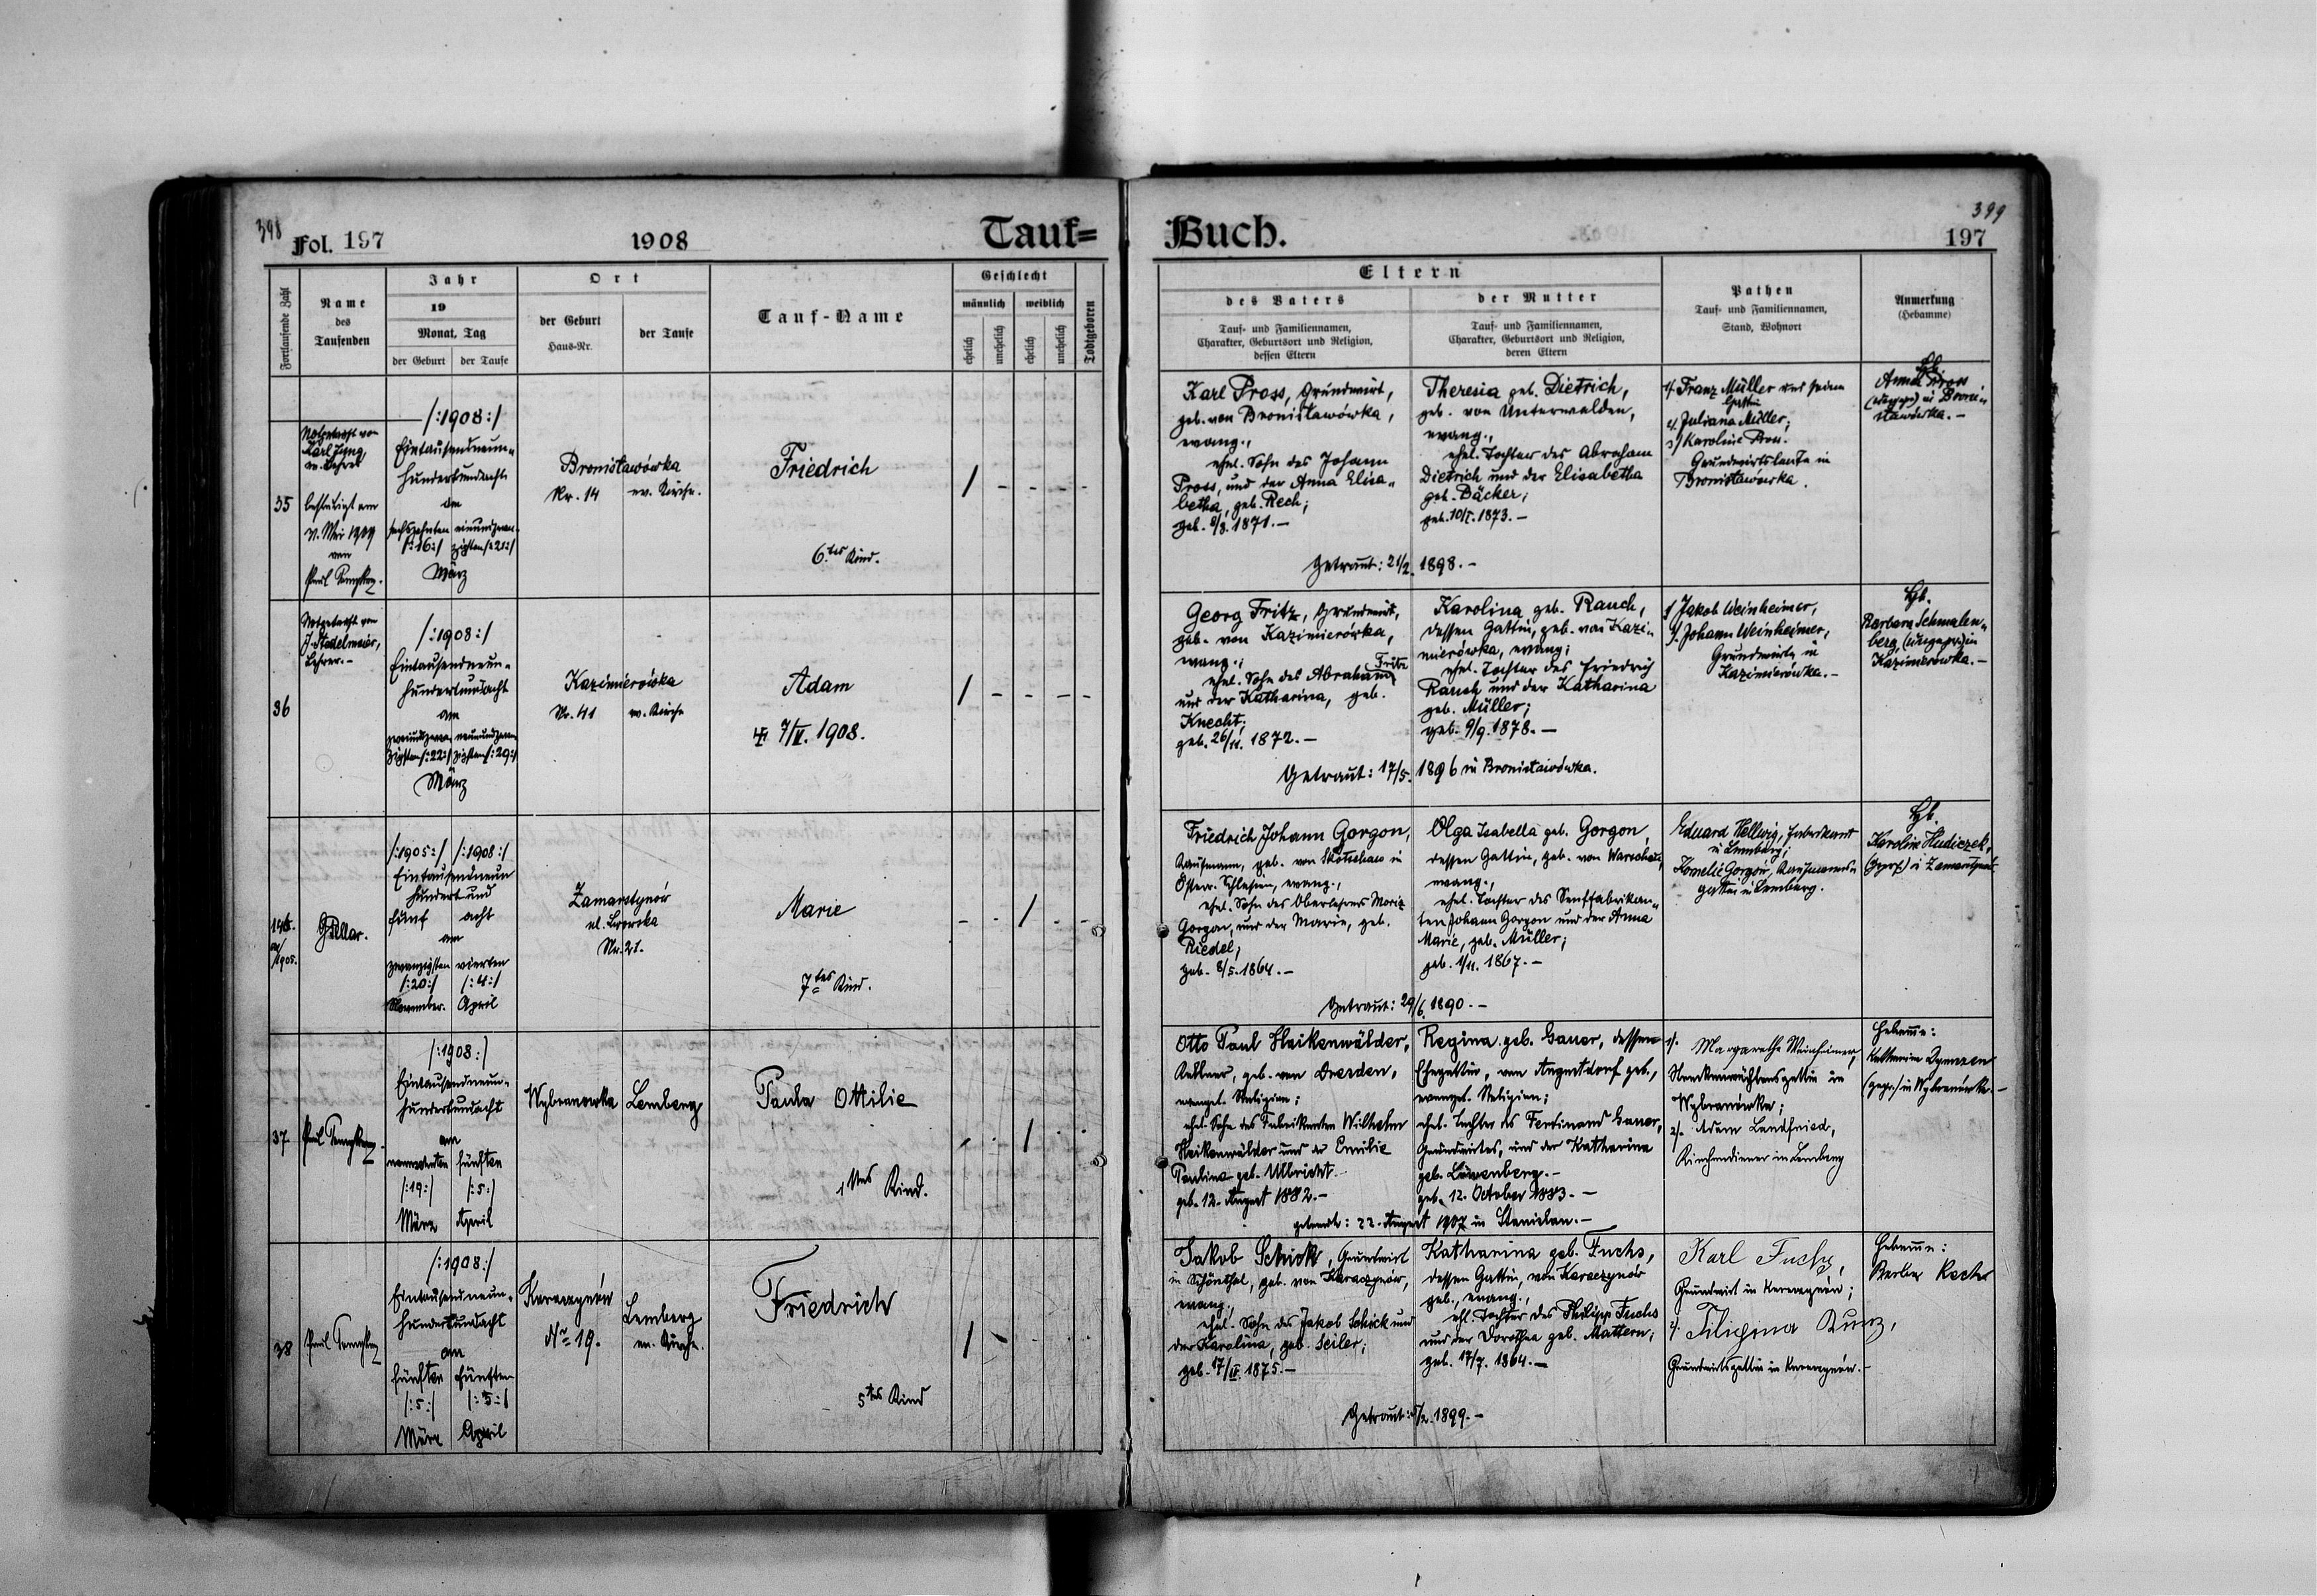 398
Fol. 197
1908
Tauf=
Fortlaufende Zahl
Name
des
Taufenden
Jahr
19
Monat, Tag
der Geburt
der Taufe
Ort
der Geburt
Haus-Nr.
der Taufe
Tauf-Name
Geschlecht
männlich
weiblich
ehelich
unehelich
ehelich
unehelich
Todtgeboren
35
Notgetauft von
Karl Jung,
Lehrer
bestätigt am
Mai 1909
von
Paul
/:1908:/
Eintausendneun-
hundertundacht
am
sechszehnten
/:16:/
einundzwan-
zigsten /:21:/
März
Bronisławówka
Nr. 14
ev. Kirche.
Friedrich
6.tes Kind.
36
Notgetauft von
J. Stadelmaier,
Lehrer.-
/:1908:/
Eintausendneun-
hundertundacht
am
zweiundzwan-
zigsten /:22:/
neunundzwan-
zigsten /:29:/
März
Kazimierówka
Nr. 41
ev. Kirche
Adam
7/IV. 1908.
1905.
/:1905:/ /:1908:/
Eintausendneun
hundertund
fünf acht
am
zwanzigsten vierten
/:20:/ /:4:/
November. April
Zamarstynów
ul. Lwowska
Nr. 21.
Marie
7.tes Kind.
37
Paul
/:1908:/
Eintausendneun-
hundertundacht
am
neunzehnten fünften
/:19:/ /:5:/
März April
Wybranowka
Lemberg
Paula Ottilie
1tes Kind.
38
Paul
/:1908:/
Eintausendneun-
hundertundacht
am
fünften fünften
/:5:/ /:5:/
März April
Karaczynów
No 19.
Lemberg
ev. Kirche.
Friedrich
5tes Kind
Buch.
399
197
Eltern
des Vaters
Tauf- und Familiennamen,
Charakter, Geburtsort und Religion,
dessen Eltern
der Mutter
Tauf- und Familiennamen,
Charakter, Geburtsort und Religion,
deren Eltern
Pathen
Tauf- und Familiennamen,
Stand, Wohnort
Anmerkung
(Hebamme)
Karl Pross, Grundwirt,
geb. von Bronisławówka,
evang.,
ehel. Sohn des Johann
Pross, und der Anna Elisa-
betha, geb. Rech;
geb. 8/8. 1871.-
Theresia geb. Dietrich,
geb. von Unterwalden,
evang.,
ehel. Tochter des Abraham
Dietrich und der Elisabetha
geb. Bäcker;
geb. 10/1. 1873.-
Getraut: 21/2. 1898.-
1/. Franz Müller und seine
Gattin
2/. Juliana Müller;
3/ Karoline Pross.
Grundwirtsleute in
Bronisławówka.
Hb.
Anna Pross
(ungepr.) in Broni-
sławówka.-
Georg Fritz, Grundwirt,
geb. von Kazimierówka,
evang.;
ehel. Sohn des Abraham Fritz
und der Katharina, geb.
Knecht;
geb. 26/11. 1872.-
Karolina geb. Rauch,
dessen Gattin, geb. von Kazi-
mierówka, evang;
ehel. Tochter des Friedrich
Rauch und der Katharina
geb. Müller;
geb. 9/9. 1878.-
Getraut: 17/5. 1896 in Bronisławówka.
1/ Jakob Weinheimer,
2/. Johann Weinheimer,
Grundwirte in
Kazimierówka.-
Hb.
Barbara Schmalen-
berg, (ungepr.) in
Kazimierowka.-
Friedrich Johann Gorgon,
Kaufmann, geb. von Skotschau in
Österr. Schlesien, evang.,
ehel. Sohn des Oberlehrers Moriz
Gorgon, und der Marie, geb.
Riedel;
geb. 8/5. 1864.-
Olga Isabella geb. Gorgon,
dessen Gattin, geb. von Warschau,
evang.,
ehel. Tochter des Senffabrikan-
ten Johann Gorgon und der Anna
Marie, geb. Müller;
geb. 1/11. 1867.-
Getraut: 29/6. 1890.-
Eduard Hellwig, Fabrikant
in Lemberg;
Kornelie Gorgon, Kaufmanns-
gattin in Lemberg.
Hb.
Karoline Hudiczek,
(gepr.) in Zamarstynów
Otto Paul Heikenwälder,
Kellner, geb. von Dresden,
evangel. Religion;
ehel. Sohn des Fabrikanten Wilhelm
Heikenwälder und der Emilie
Paulina geb. Ulbricht.
geb. 12. August 1882.-
Regina geb. Gauer, dessen
Ehegattin, von Augustdorf geb.,
evangel. Religion;
ehel. Tochter des Ferdinand Gauer,
Grundwirtes, und der Katharina
geb. Löwenberg.-
geb. 12. October 1883.-
getraut: 22. August 1907 in Stanislau.-
1/. Margarethe Weinheimer,
in
Wybranówka;
2/. Adam Landfried,
Kirchendiener in Lemberg
Hebamme:
Katharina
(gepr.) in Wybranówka.-
Jakob Schick, Grundwirt
in Schönthal, geb. von Karaczynów,
evang.,
ehel. Sohn des Jakob Schick und
der Karolina, geb. Seiler;
geb. 17/IV. 1875.-
Katharina geb. Fuchs,
dessen Gattin, von Karaczynów
geb., evang.,
ehel. Tochter des Philipp Fuchs
und der Dorothea geb. Mattern;
geb. 17/7. 1864.-
Getraut: 5/2. 1899.-
Karl Fuchs,
Grundwirt in Karaczynów;
2/. Filipina Kunz,
Grundwirtsgattin in Karaczynów.-
Hebamme:
Barbara Rech